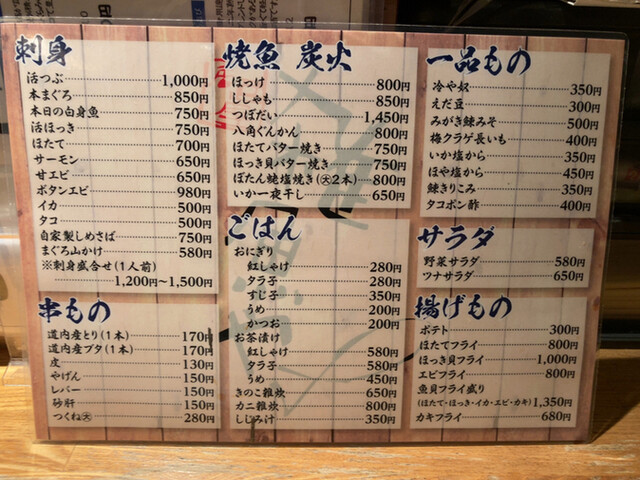 刺身
活つぶ 1,000円
本まぐろ 850円
本日の白身魚 750円
活ほっき 750円
ほたて 700円
サーモン 650円
甘エビ 650円
ボタンエビ 980円
イカ 500円
タコ 500円
自家製しめさば 750円
まぐろ山かけ 580円
※刺身盛合せ(1人前)
1,200円~1,500円
串もの
道内産とり(1本) 170円
道内産ブタ(1本) 170円
皮 130円
やげん 150円
レバー 150円
砂肝 150円
つくね大 280円
焼魚 炭火
ほっけ 800円
ししゃも 850円
つぼだい 1,450円
八角ぐんかん 800円
ほたてバター焼き 750円
ほっき貝バター焼き 750円
ぼたん蝦塩焼き(大2本) 800円
いか一夜干し 650円
ごはん
おにぎり
紅しゃけ 280円
タラ子 280円
すじ子 350円
うめ 200円
かつお 200円
お茶漬け
紅しゃけ 580円
タラ子 580円
うめ 450円
きのこ雑炊 650円
カニ雑炊 800円
しじみ汁 350円
一品もの
冷や奴 350円
えだ豆 300円
みがき鰊みそ 500円
梅クラゲ長いも 400円
いか塩から 350円
ほや塩から 450円
鰊きりこみ 350円
タコポン酢 400円
サラダ
野菜サラダ 580円
ツナサラダ 650円
揚げもの
ポテト 300円
ほたてフライ 800円
ほっき貝フライ 1,000円
エビフライ 800円
魚貝フライ盛り
(ほたて・ほっき・イカ・エビ・カキ) 1,350円
カキフライ 680円